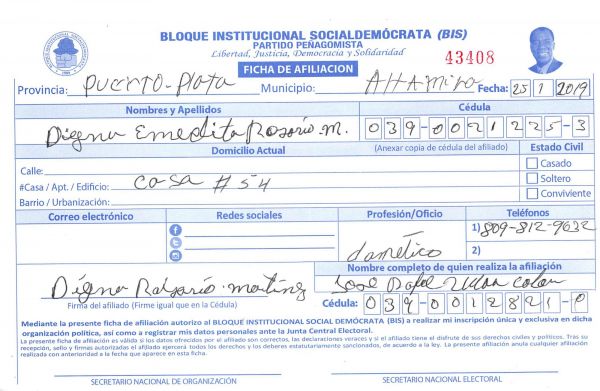 BLOQUE INSTITUCIONAL SOCIALDEMÓCRATA (BIS)
PARTIDO PEÑAGOMISTA
Libertad, Justicia, Democracia y Solidaridad
43408
FICHA DE AFILIACION
Provincia: Puerto-Plata Municipio: Altamira Fecha: 25 1 2019
Nombres y Apellidos Cédula
Digna Emedita Rosario. M. 039-0021225-3
Domicilio Actual (Anexar copia de cédula del afiliado) Estado Civil
Calle: Casado
#Casa / Apt. / Edificio: Casa #54 Soltero
Barrio / Urbanización: Conviviente
Correo electrónico Redes sociales Profesión/Oficio Teléfonos
1) 809-812-9632
dométíco 2)
Nombre completo de quien realiza la afiliación
Digna Rosario Martinez Jose Rafel Colon
Firma del afiliado (Firme igual que en la Cédula) Cédula: 039-0012821-0
Mediante la presente ficha de afiliación autorizo al BLOQUE INSTITUCIONAL SOCIAL DEMÓCRATA (BIS) a realizar mi inscripción única y exclusiva en dicha
organización política, así como a registrar mis datos personales ante la Junta Central Electoral.
La presente ficha de afiliación es válida si los datos ofrecidos por el afiliado son correctos, las declaraciones veraces y si el afiliado tiene el disfrute de sus derechos civiles y políticos. Tras su
recepción, sello y firmas autorizadas el afiliado ejercerá todos los derechos y los deberes estatutariamente sancionados, de acuerdo a la ley. La presente afiliación anula cualquier afiliación
realizada con anterioridad a la fecha que aparece en esta ficha.
SECRETARIO NACIONAL DE ORGANIZACIÓN SECRETARIO NACIONAL ELECTORAL